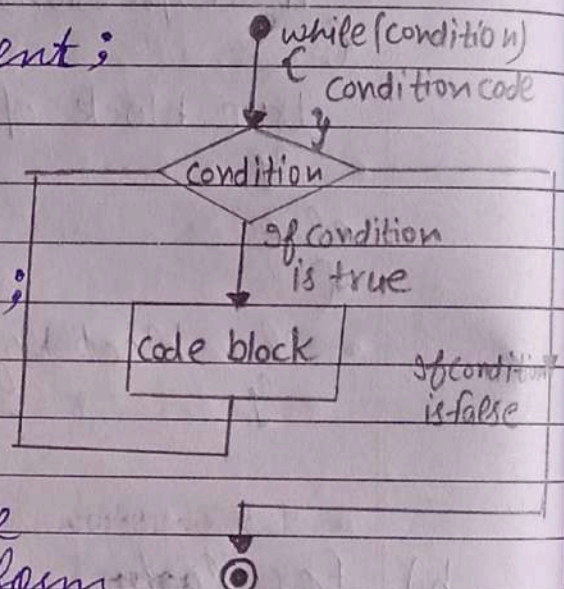 ent;
while(condition)
{
condition code
}
condition
If condition
is true
;
code block
If condition
is false